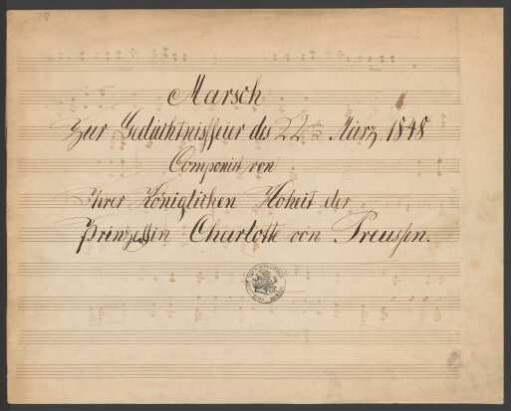 28
Marsch
Zur Gedächtnissfeier des 22ten März 1848
Componirt von
Ihrer Königlichen Hoheit der
Prinzessin Charlotte von Preussen.